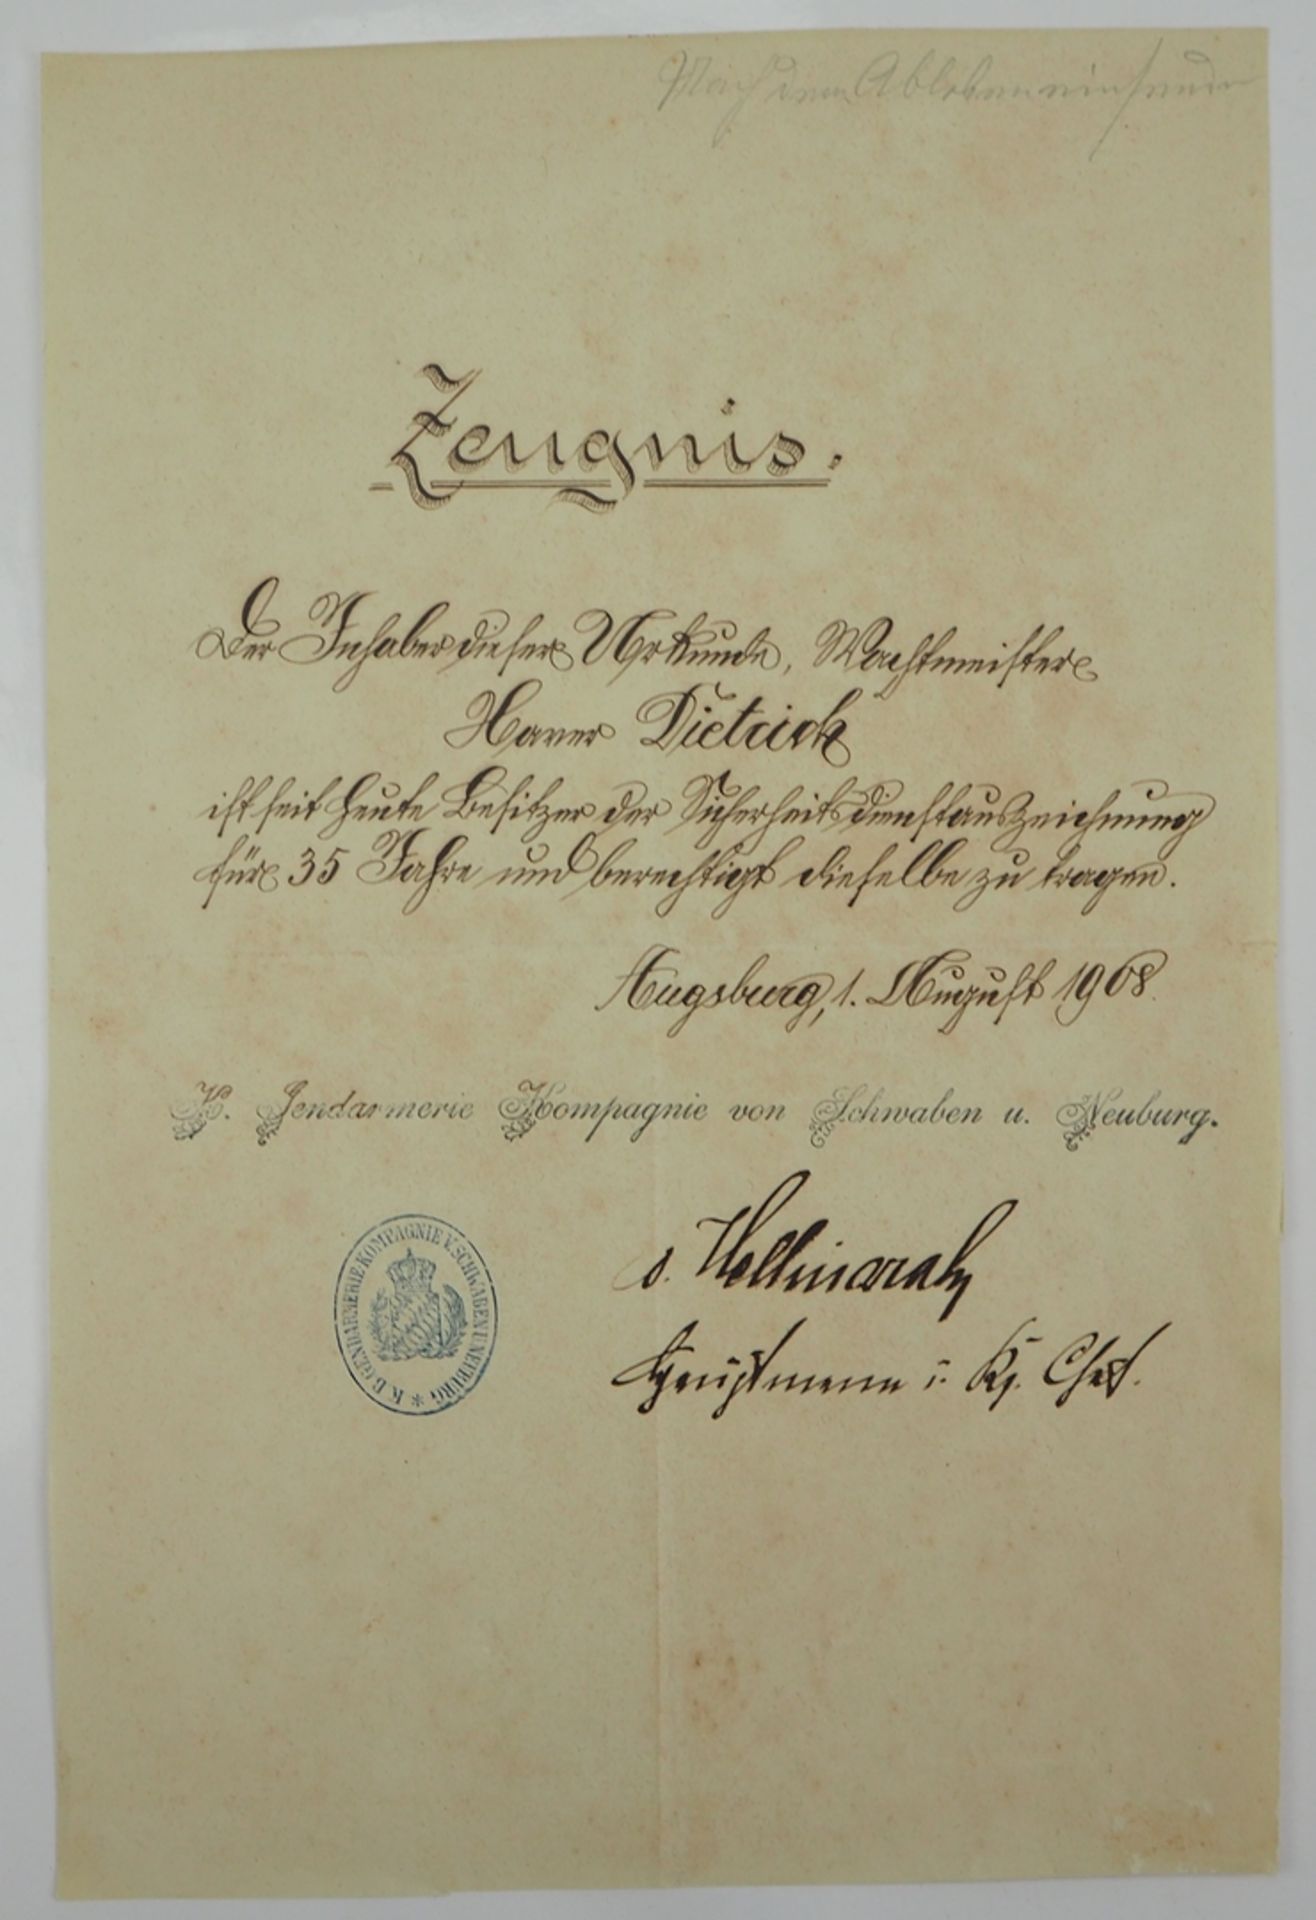 Nach dem Ableben einsenden
Zeugnis.
Der Inhaber dieser Urkunde, Wachtmeister
Xaver Dietrich
ist seit heute Besitzer der Sicherheitsdienstauszeichnung
für 35 Jahre und berechtigt dieselbe zu tragen.
Augsburg, 1. August 1908.
K. Gendarmerie Kompagnie von Schwaben u. Neuburg.
K.B. GENDARMERIE-KOMPAGNIE V. SCHWABEN U. NEUBURG *
v. Hellingrath
Hauptmann u. Chef.